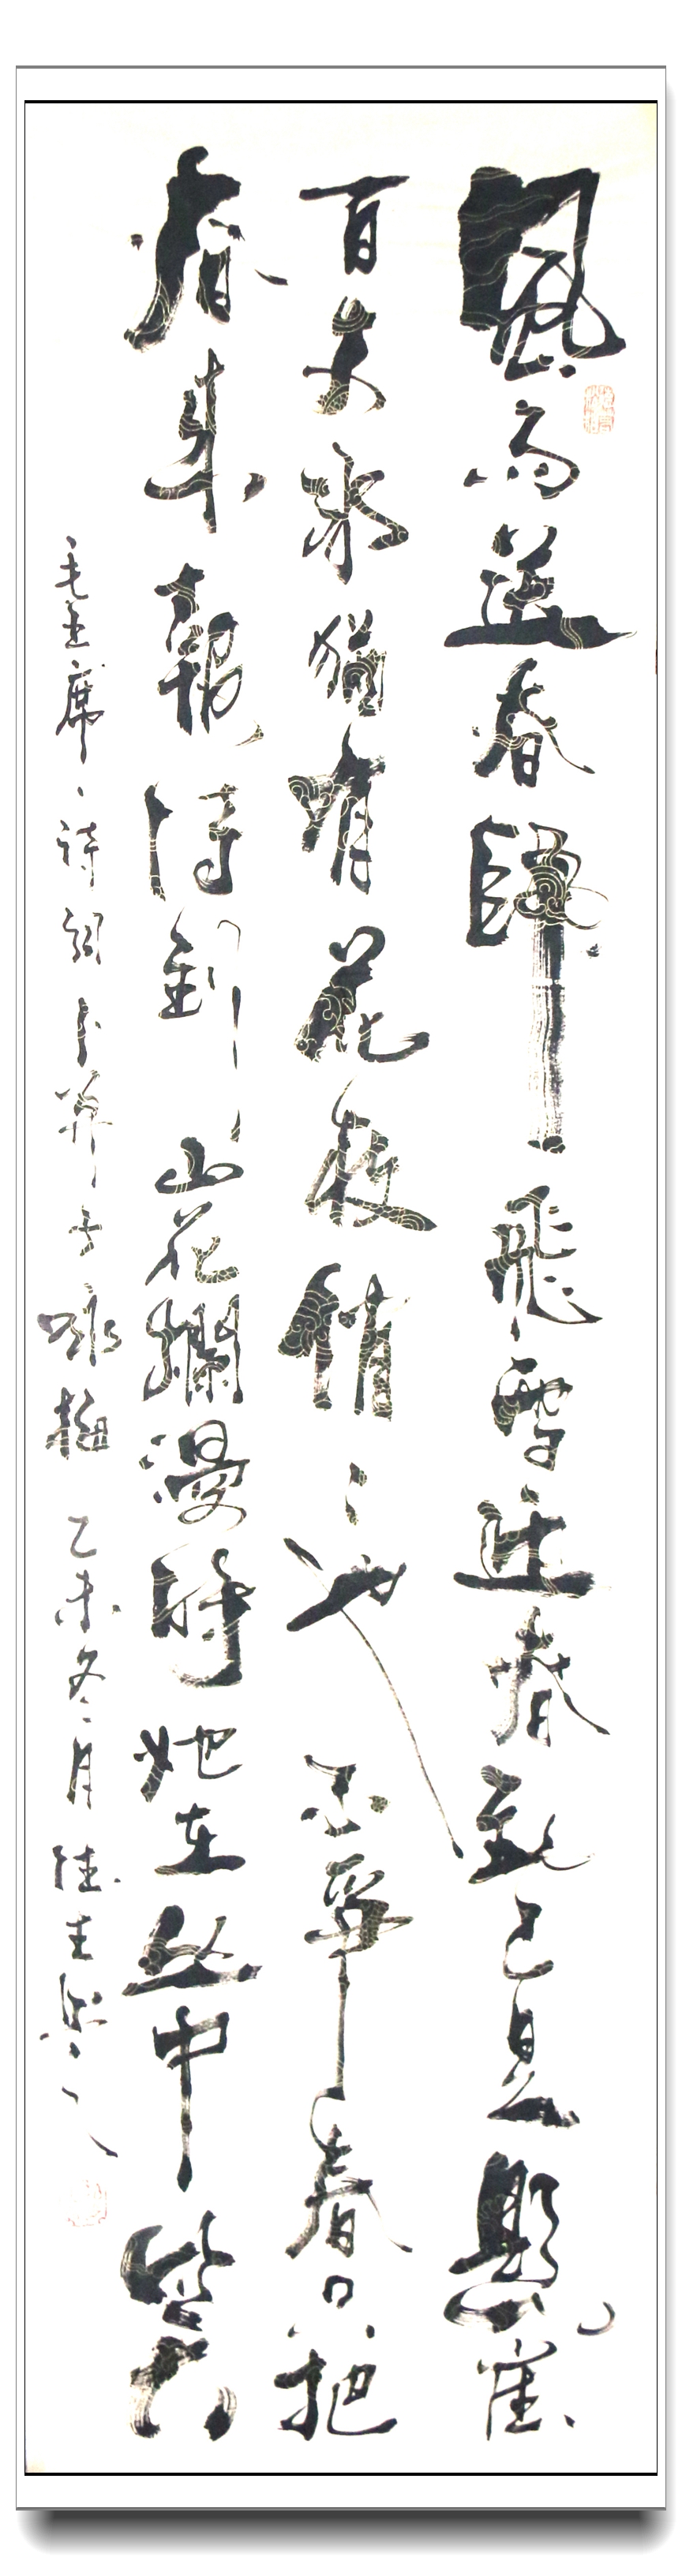 風雨送春歸飛雪迎春到已是懸崖
百丈冰猶有花枝俏〻也不爭春只把
春來報待到山花爛漫時她在丛中笑
毛主席、詩詞卜算子咏梅 乙未冬月